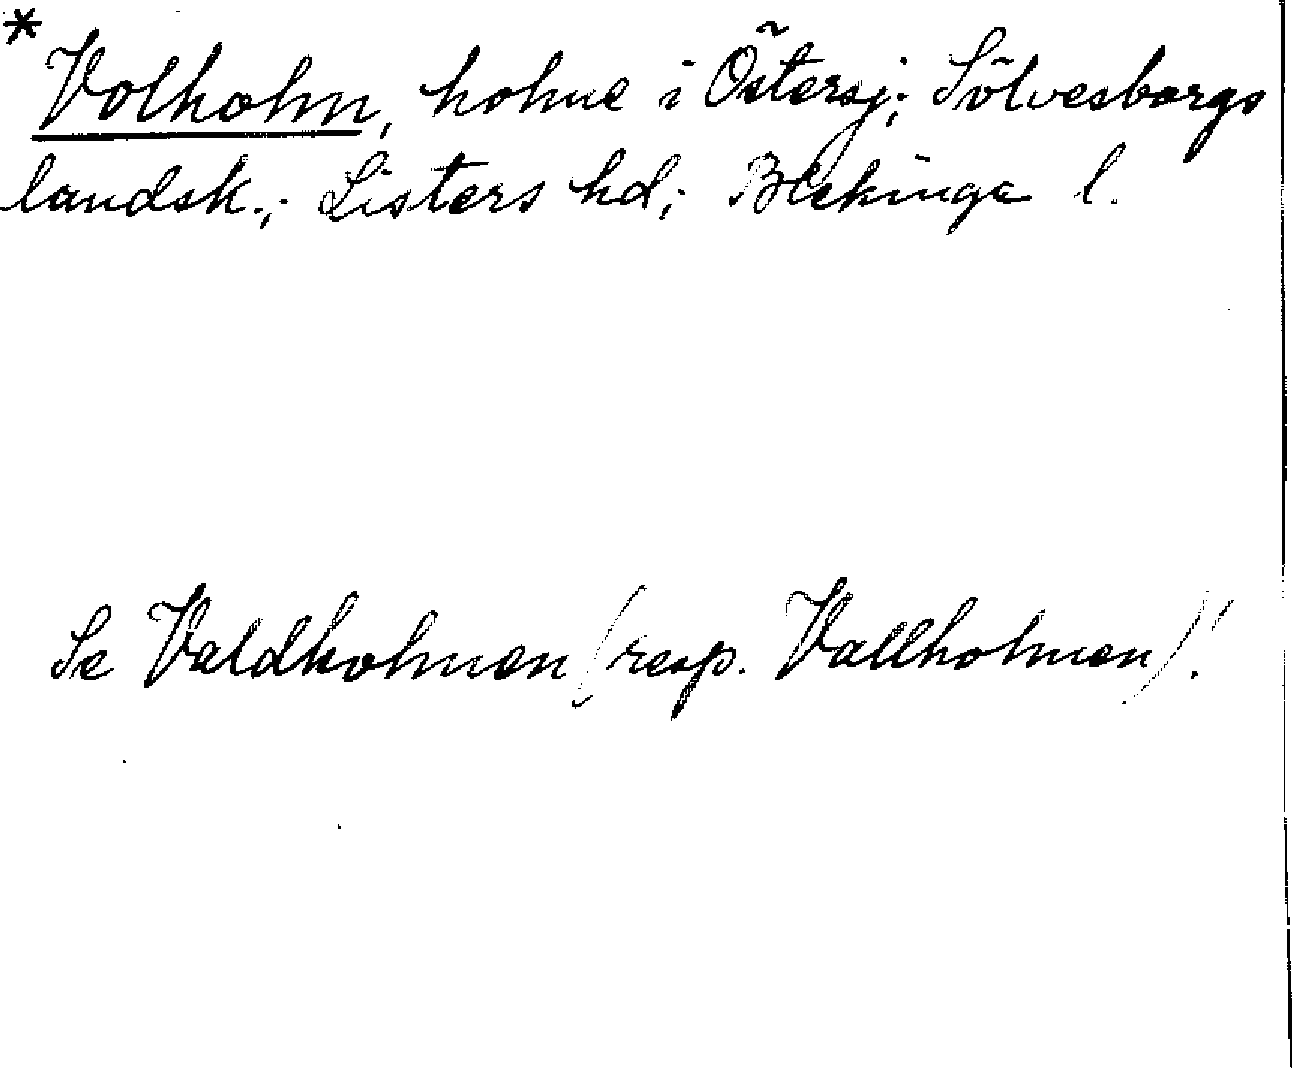 * Volholm, holme i Östersj.; Sölvesborgs
landsk.; Listers hd; Blekinge l.
Se Valdholmen (resp. Vallholmen)!